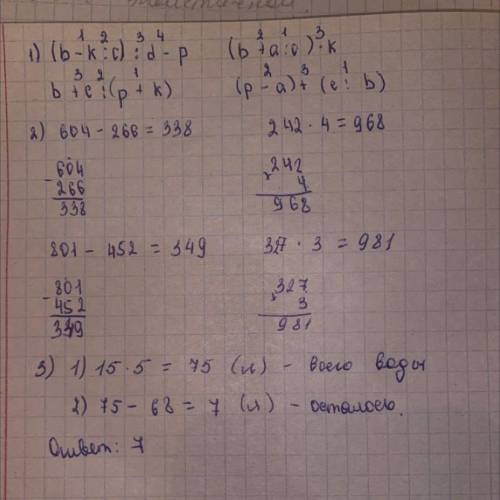 1 2 3 4
1) (b - k : c) : d - p
2 1 3
(b + a : c) · k
3 2 1
b + c : (p + k)
2 3 1
(p - a) + (c : b)
2) 604 - 266 = 338
242 · 4 = 968
- 604
266
338
× 242
4
968
801 - 452 = 349
327 · 3 = 981
- 801
452
349
× 327
3
981
3) 1) 15 · 5 = 75 (л) - всего воды
2) 75 - 68 = 7 (л) - осталось.
Ответ: 7